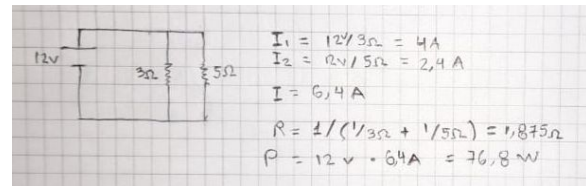 12V
3Ω
5Ω
I₁ = 12V/3Ω = 4A
I₂ = 12V/5Ω = 2,4 A
I = 6,4 A
R = 1/(1/3Ω + 1/5Ω) = 1,875Ω
P = 12 V · 6,4A = 76,8 W